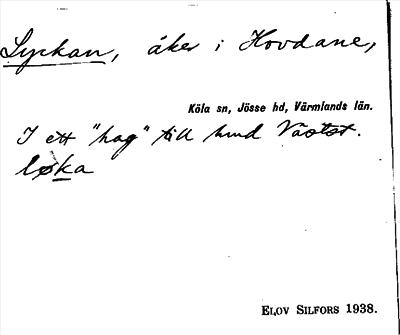 Lyckan, åker i Hovdane,
Köla sn, Jösse hd, Värmlands län.
I ett "hag" till hmd Västst.
løka
ELOV SILFORS 1938.